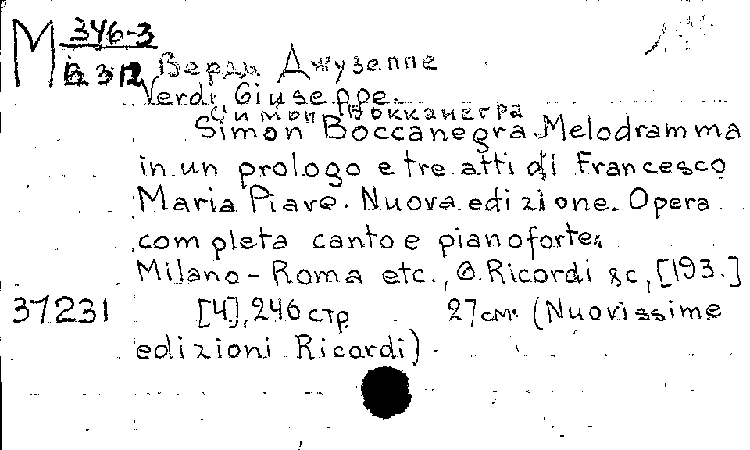 М 346-3
В 312
Верди Джузеппе
Verdi Giuseppe.
Симон Бокканегра
Simon Boccanegra. Melodramma
in un prologo e tre atti di Francesco
Maria Piave. Nuova edizione. Opera
completa canto e pianoforte.
Milano - Roma etc., G. Ricordi &c, [193.]
37231 [4], 246 стр 27 см. (Nuovissime
edizioni Ricordi).